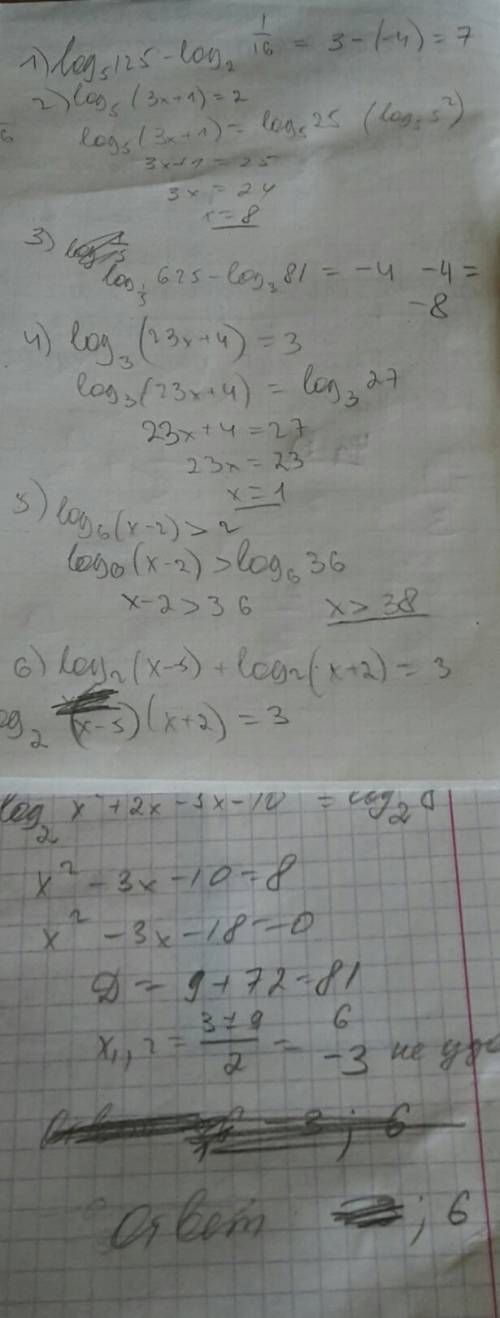 1) log₅125 - log₂ 1/16 = 3 - (-4) = 7
2) log₅(3x+1) = 2
log₅(3x+1) = log₅25 (log₅5²)
3x+1 = 25
3x = 24
x = 8
3)
log 625 - log₃81 = -4 -4 =
-8
4) log₃(23x+4) = 3
log₃(23x+4) = log₃27
23x+4 = 27
23x = 23
x = 1
5) log₆(x-2) > 2
log₆(x-2) > log₆36
x-2 > 36 x > 38
6) log₂(x-5) + log₂(x+2) = 3
og₂ (x-5)(x+2) = 3
log₂ x²+2x-5x-10 = log₂8
x² - 3x - 10 = 8
x² - 3x - 18 = 0
D = 9 + 72 = 81
x₁,₂ = 3±9/2 = 6
-3 не удо
-3; 6
Ответ ; 6